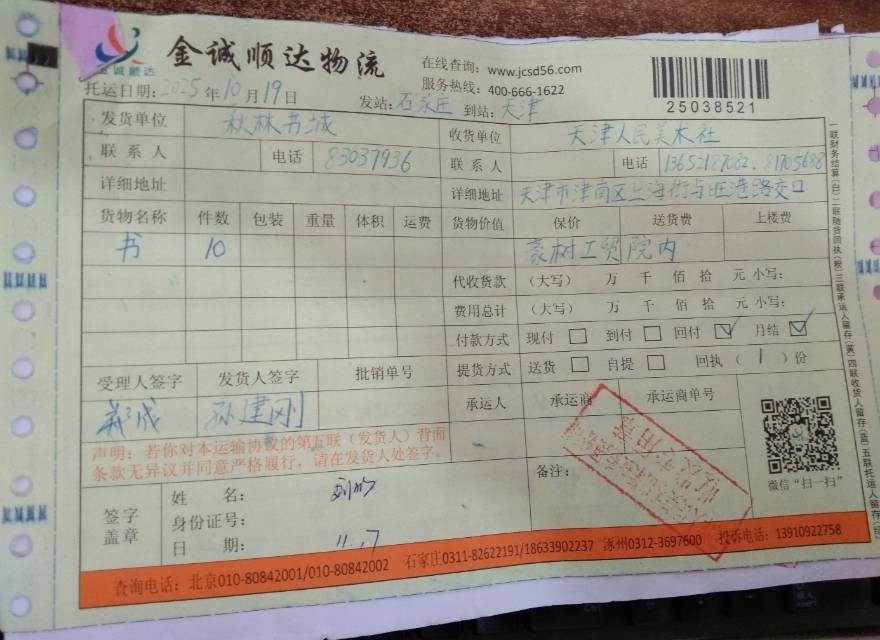 金诚顺达物流
金诚顺达
在线查询：www.jcsd56.com
服务热线：400-666-1622
25038521
托运日期：2025年10月19日 发站：石家庄 到站：天津
发货单位 秋林书城 收货单位 天津人民美术社
联系人 电话 83037936 联系人 电话 13652187082、81705688
详细地址 详细地址 天津市津南区上海街与旺港路交口
货物名称 件数 包装 重量 体积 运费 货物价值 保价 送货费 上楼费
书 10 豪树工贸院内
代收货款 （大写） 万 千 佰 拾 元 小写：
费用总计 （大写） 万 千 佰 拾 元 小写：
付款方式 现付 □ 到付 □ 回付 ☑ 月结 ☑
提货方式 送货 □ 自提 □ 回执（ 1 ）份
受理人签字 发货人签字 批销单号 承运人 承运商 承运商单号
孙建刚
声明：若你对本运输协议的第五联（发货人）背面
条款无异议并同意严格履行，请在发货人处签字。
备注：
微信“扫一扫”
签字
盖章
姓 名： 刘
身份证号：
日 期： 11.17
查询电话：北京010-80842001/010-80842002 石家庄0311-82622191/18633902237 涿州0312-3697600 投诉电话：13910922758
一联财务结算（白）二联随货回执（粉）三联承运人留存（黄）四联收货人留存（蓝）五联托运人留存（绿）